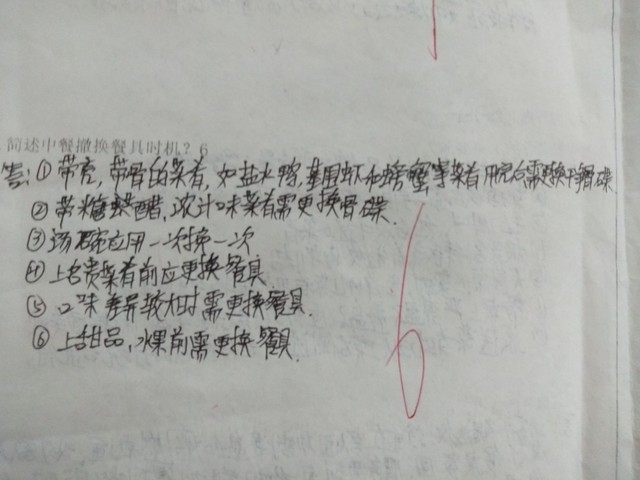 简述中餐撤换餐具时机？6
答：①带壳，带骨的菜肴，如盐水鸭，基围虾和螃蟹等菜肴用完后需更换干骨碟
②带糖醋，浓汁味菜肴需更换骨碟.
③汤碗应用一次换一次
④上名贵菜肴前应更换餐具
⑤口味差异较大时需更换餐具.
⑥上甜品，水果前需更换餐具.
6